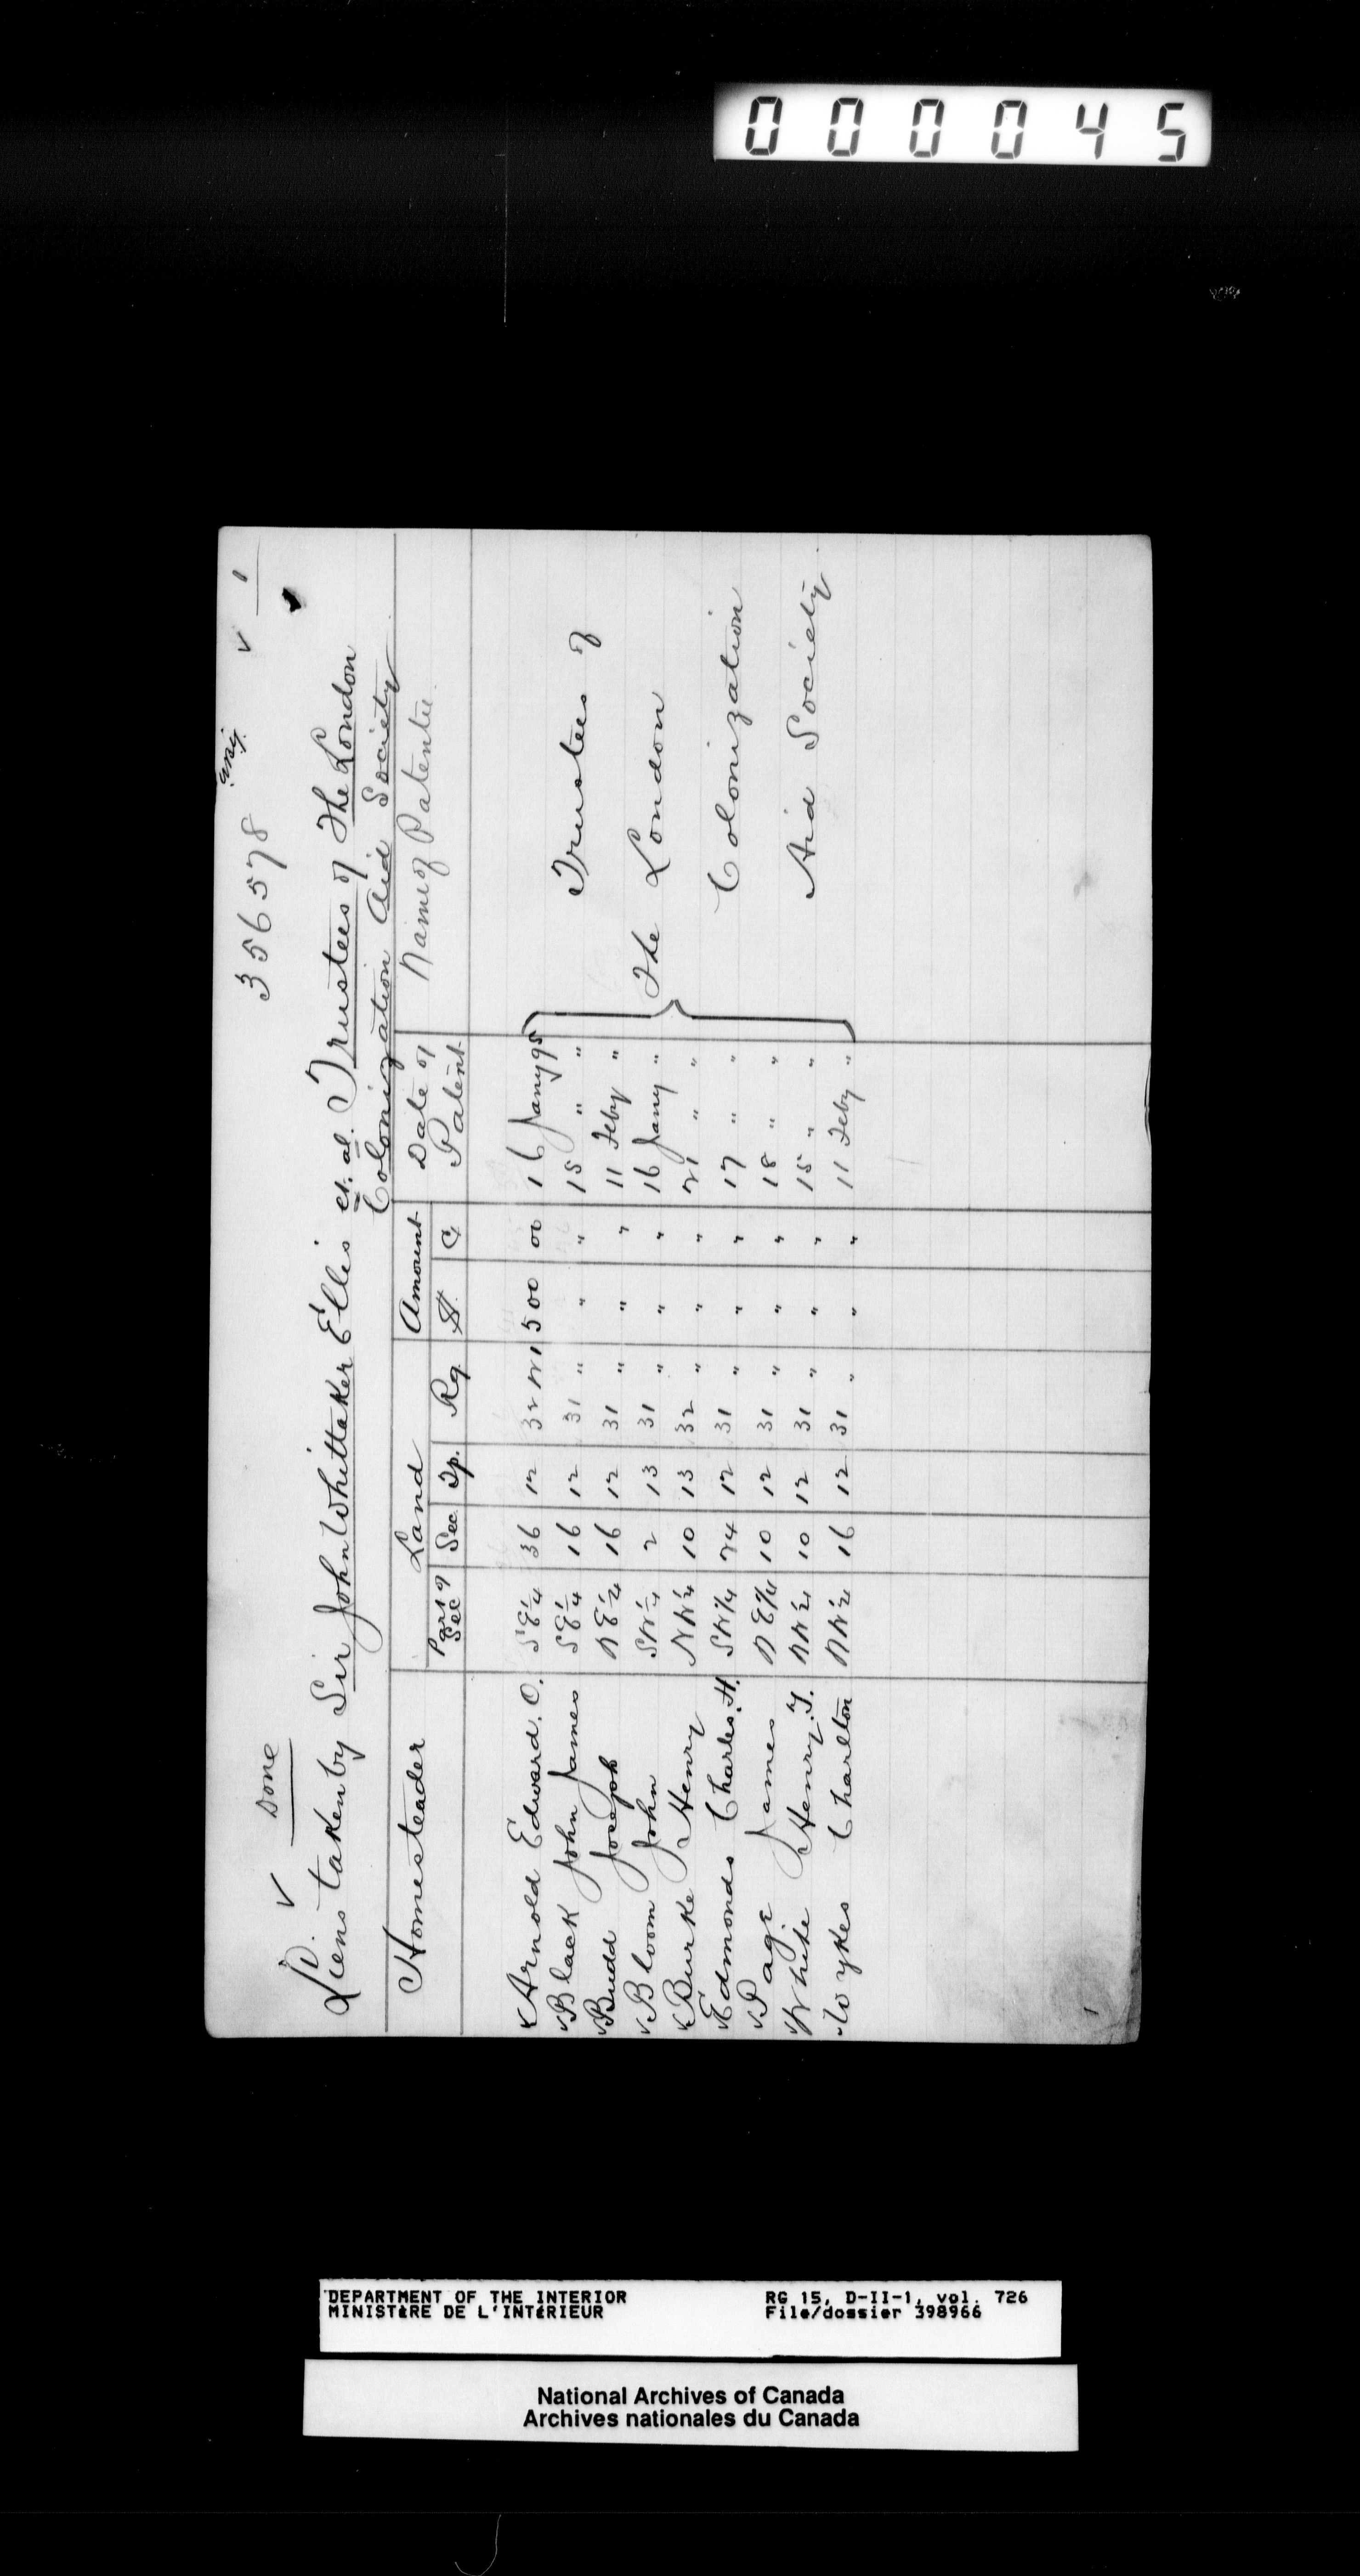 000045
✓ Done 356578 ✓ 1
Liens taken by Sir John Whittaker Ellis et. al. Trustees of The London
Colonization Aid Society
Homesteader Land Amount Date of Patent Name of Patentee
Part of Sec Sec Tp. Rg. $ C
✓ Arnold Edward. O. SE¼ 36 12 32 W1 500 00 16 Jany 95
✓ Black John James SE¼ 16 12 31 " " " 15 " "
✓ Budd Joseph NE¼ 16 12 31 " " " 11 Feby "
✓ Bloom John SW¼ 2 13 31 " " " 16 Jany "
✓ Burke Henry NW¼ 10 13 32 " " " 21 " "
✓ Edmonds Charles. H. SW¼ 24 12 31 " " " 17 " "
✓ Page James NE¼ 10 12 31 " " " 18 " "
✓ White Henry. T. NW¼ 10 12 31 " " " 15 " "
✓ Wykes Charlton NW¼ 16 12 31 " " " 11 Feby "
Trustees of
The London
Colonization
Aid Society
DEPARTMENT OF THE INTERIOR RG 15, D-II-1, vol. 726
MINISTÈRE DE L'INTÉRIEUR File/dossier 398966
National Archives of Canada
Archives nationales du Canada